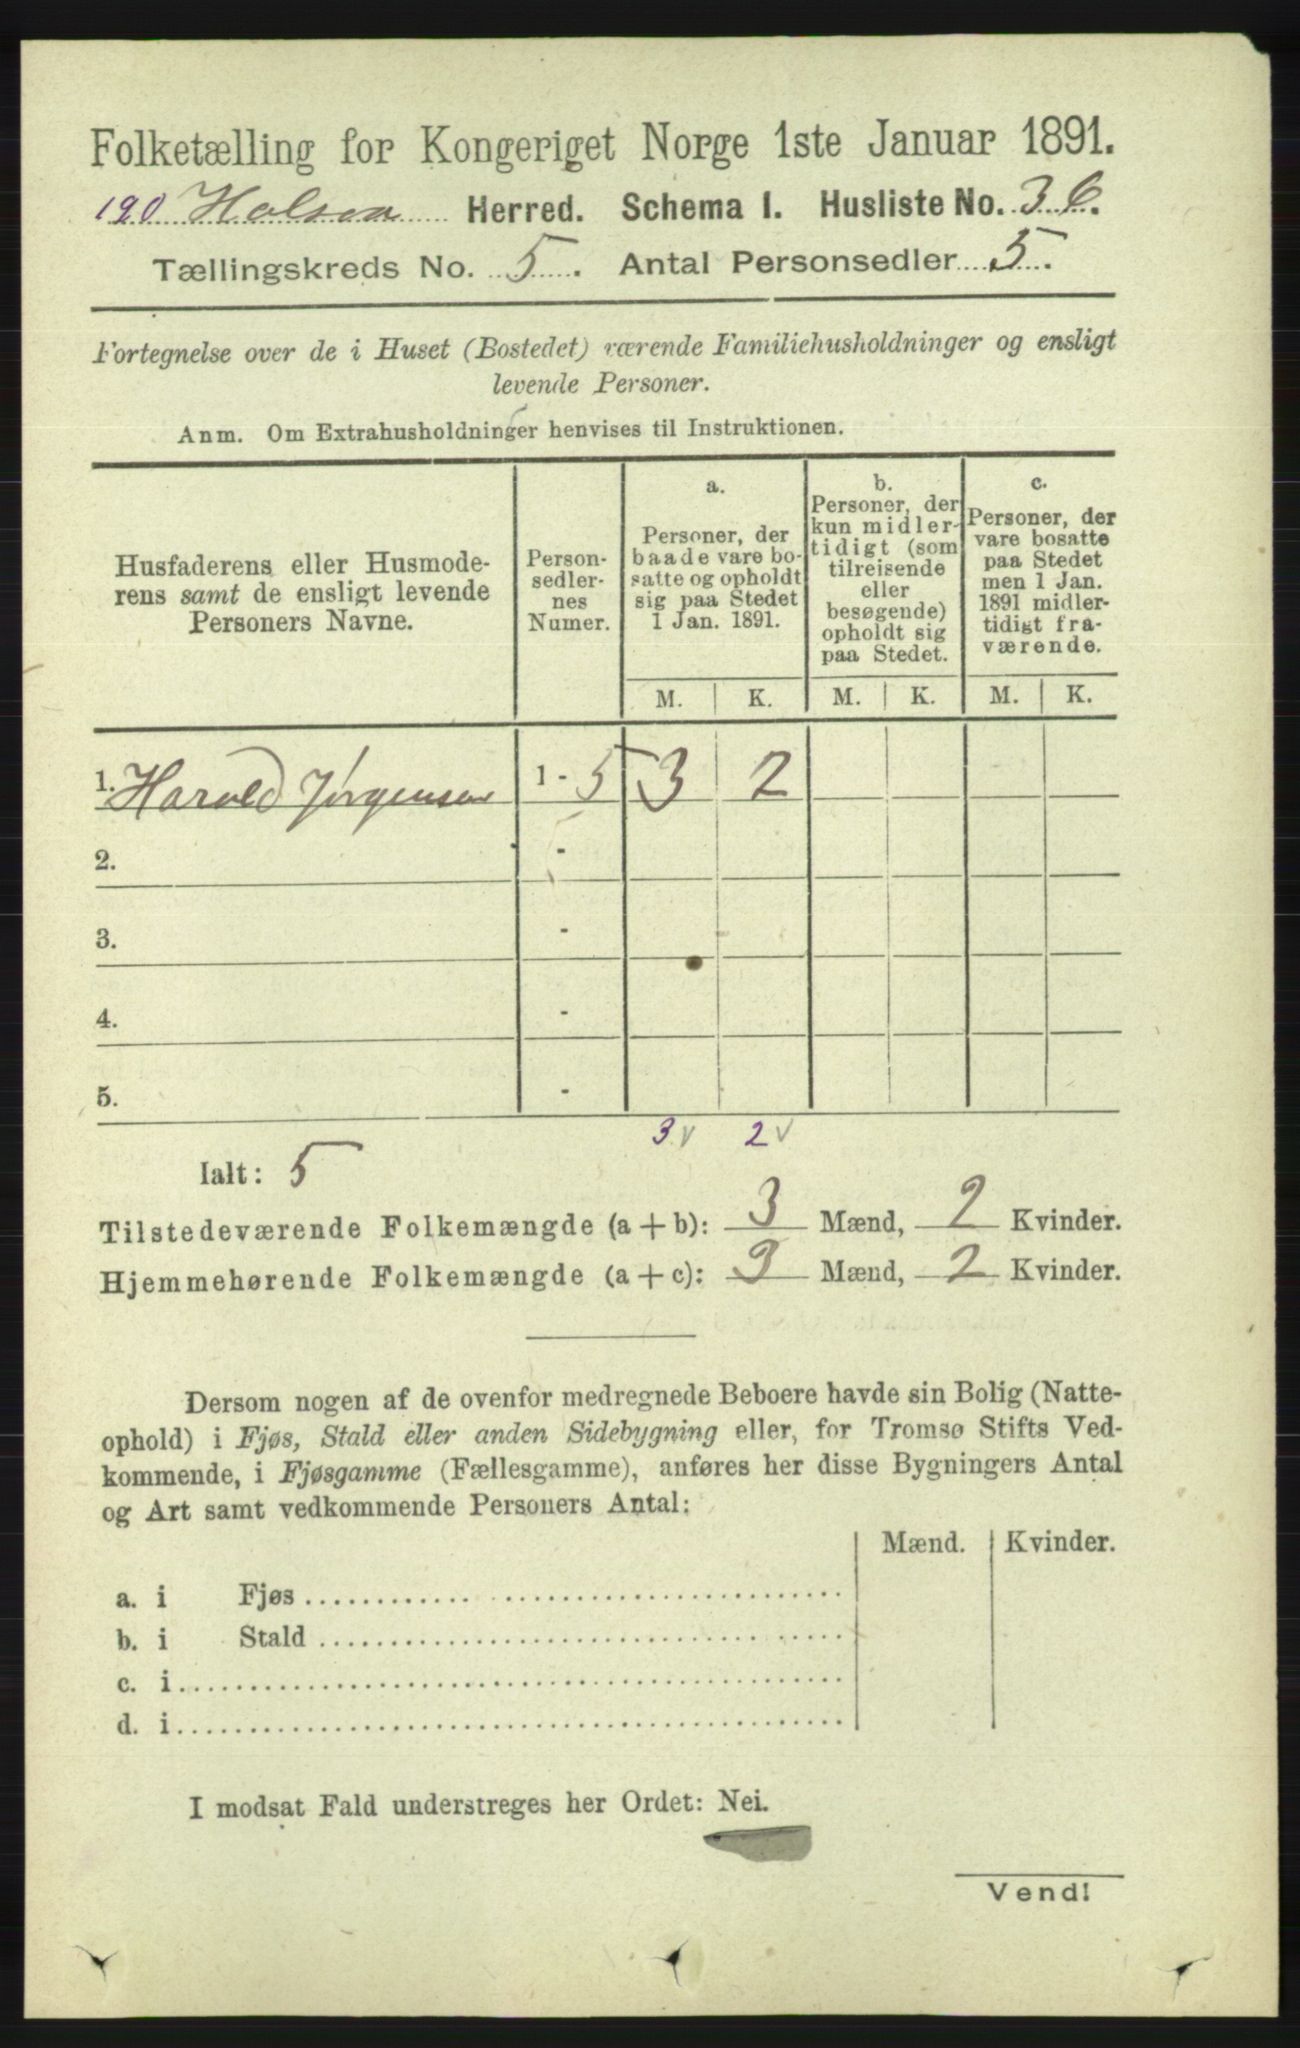 Folketælling for Kongeriget Norge 1ste Januar 1891.
190 Holsen Herred. Schema I. Husliste No. 36.
Tællingskreds No. 5. Antal Personsedler 5.
Fortegnelse over de i Huset (Bostedet) værende Familiehusholdninger og ensligt
levende Personer.
Anm. Om Extrahusholdninger henvises til Instruktionen.
Husfaderens eller Husmode-
rens samt de ensligt levende
Personers Navne.
Person-
sedler-
nes
Numer.
a.
Personer, der
baade vare bo-
satte og opholdt
sig paa Stedet
1 Jan. 1891.
b.
Personer, der
kun midler-
tidigt (som
tilreisende
eller
besøgende)
opholdt sig
paa Stedet.
c.
Personer, der
vare bosatte
paa Stedet
men 1 Jan.
1891 midler-
tidigt fra-
værende.
M. K. M. K. M. K.
1. Harald Jørgensen 1 - 5 3 2
2. -
3. -
4. -
5. -
3 v 2 v
Ialt: 5
Tilstedeværende Folkemængde (a + b): 3 Mænd, 2 Kvinder.
Hjemmehørende Folkemængde (a + c): 3 Mænd, 2 Kvinder.
Dersom nogen af de ovenfor medregnede Beboere havde sin Bolig (Natte-
ophold) i Fjøs, Stald eller anden Sidebygning eller, for Tromsø Stifts Ved-
kommende, i Fjøsgamme (Fællesgamme), anføres her disse Bygningers Antal
og Art samt vedkommende Personers Antal:
Mænd. Kvinder.
a. i Fjøs
b. i Stald
c. i
d. i
I modsat Fald understreges her Ordet: Nei.
Vend!